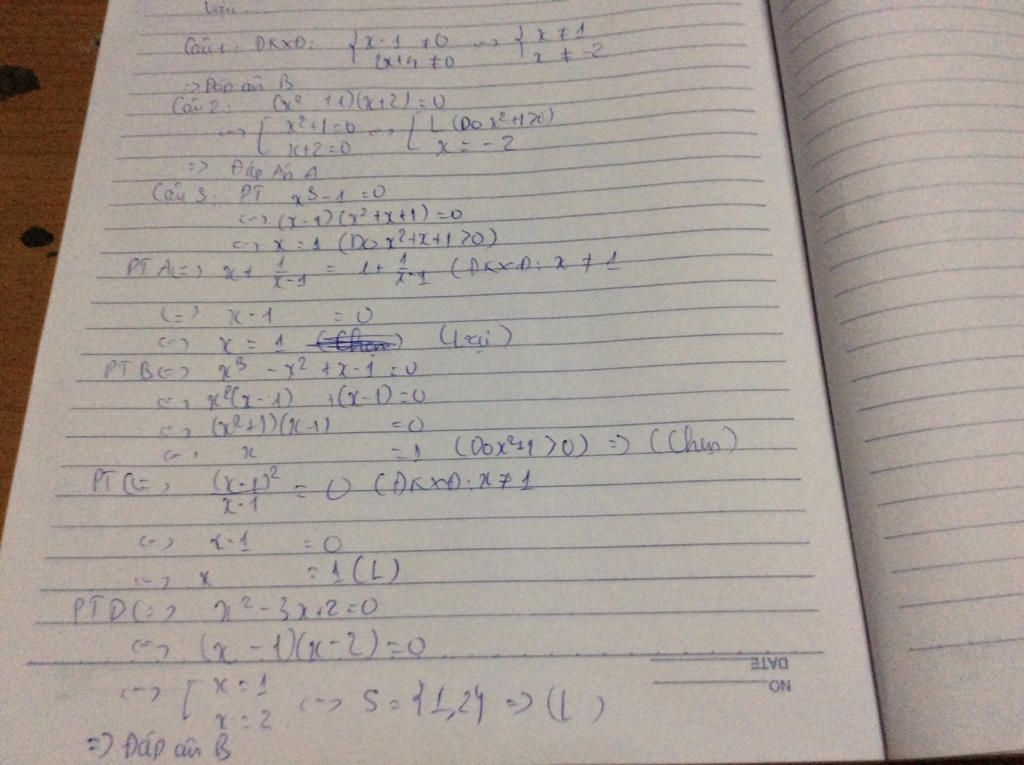 Câu 1: ĐKXĐ: { x-1 ≠ 0 <=> { x ≠ 1
2x+4 ≠ 0 x ≠ -2
=> Đáp án B
Câu 2: (x² + 1)(x+2) = 0
<=> [ x²+1=0 <=> [ L (Do x²+1>0)
x+2=0 x = -2
=> Đáp Án A
Câu 3: PT x³-1 =0
<=> (x-1)(x²+x+1)=0
<=> x=1 (Do x²+x+1>0)
PT A<=> x + 1/x-1 = 1 + 1/x-1 (ĐKXĐ: x ≠ 1
<=> x-1 = 0
<=> x = 1 (Loại)
PT B<=> x³ - x² + x-1=0
<=> x²(x-1) +(x-1)=0
<=> (x²+1)(x-1) =0
<=> x =1 (Do x²+1>0) => (Chọn)
PT C<=> (x-1)²/x-1 = 0 (ĐKXĐ: x≠1
<=> x-1 =0
<=> x =1 (L)
PT D<=> x²-3x+2=0
<=> (x-1)(x-2)=0
<=> [ x=1 <=> S={1,2} => (L)
x=2
=> Đáp án B
NO
DATE